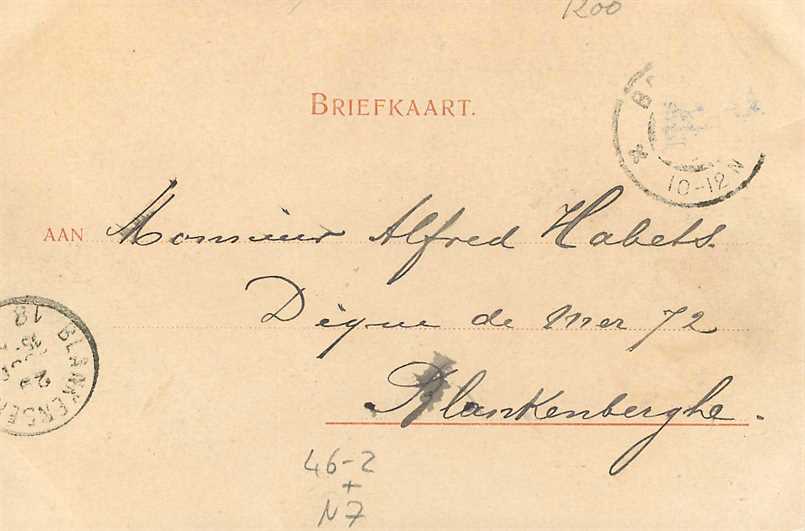 1200
BRIEFKAART.
10-12 N
AAN Monsieur Alfred Habets.
Digue de mer 72
BLANKENBER
18
Blankenberghe.
46-2
+
N7